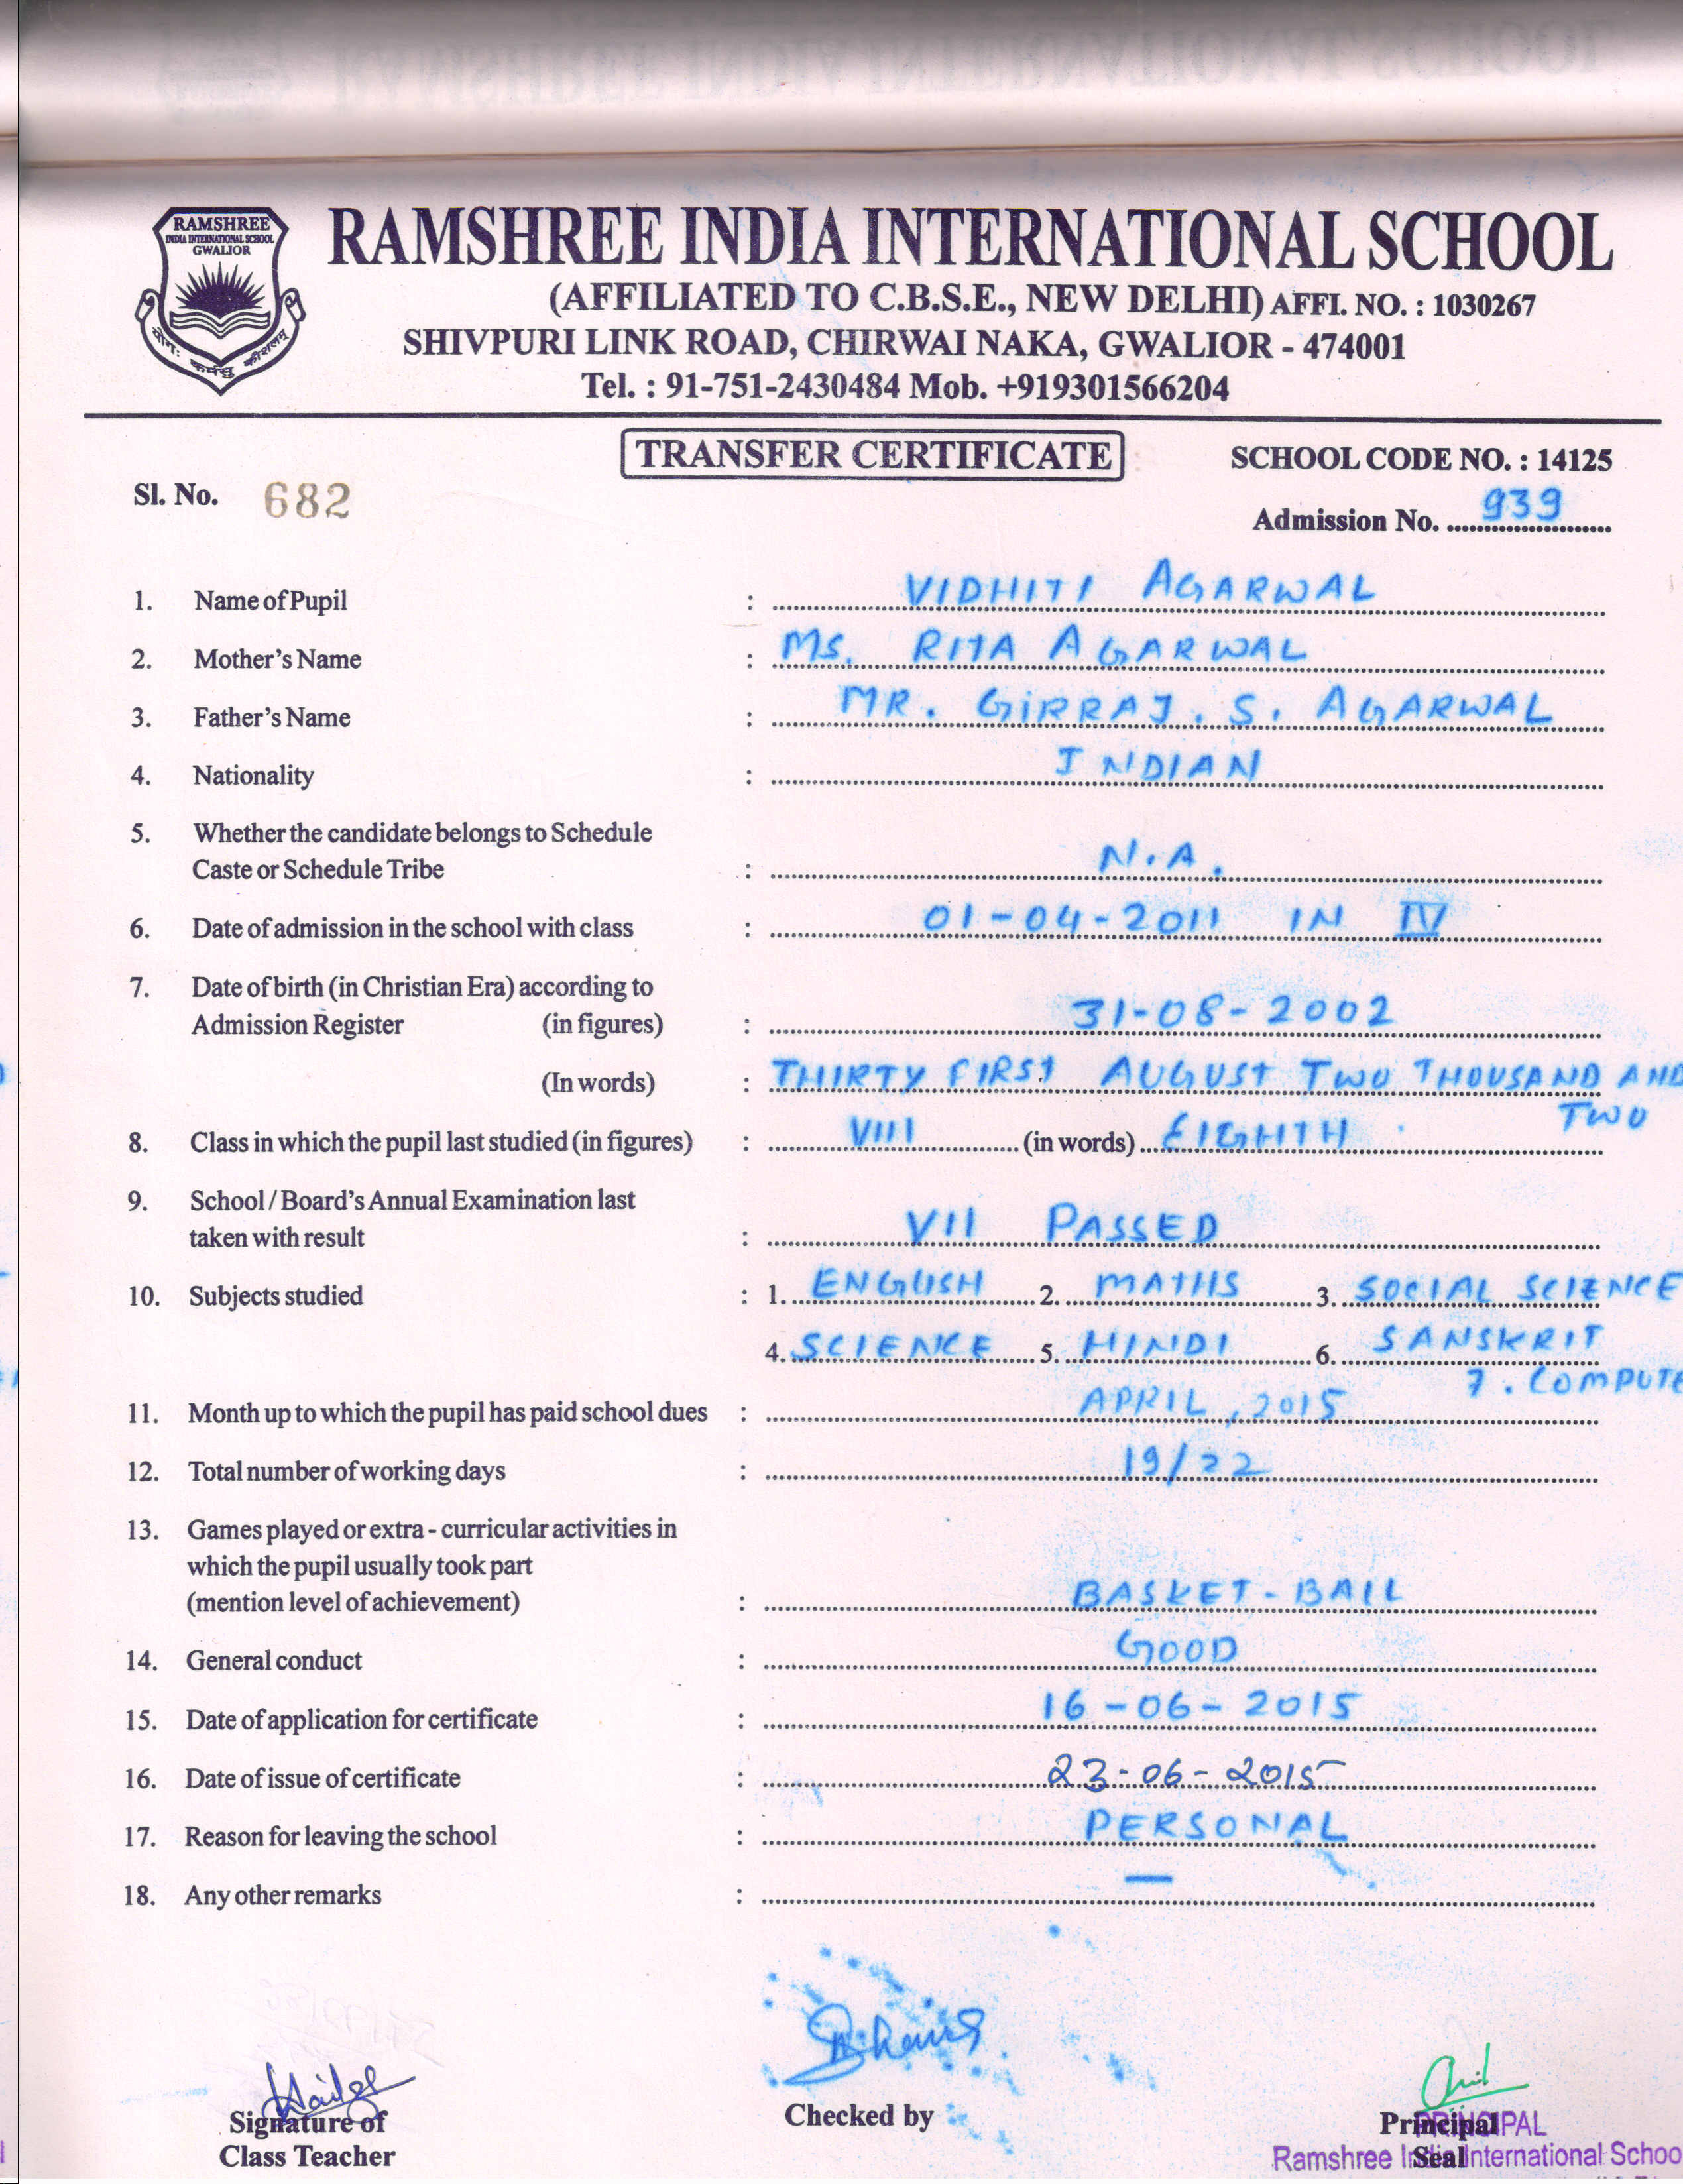 RAMSHREE
INDIA INTERNATIONAL SCHOOL
GWALIOR
योगः कर्मसु कौशलम्
RAMSHREE INDIA INTERNATIONAL SCHOOL
(AFFILIATED TO C.B.S.E., NEW DELHI) AFFI. NO. : 1030267
SHIVPURI LINK ROAD, CHIRWAI NAKA, GWALIOR - 474001
Tel. : 91-751-2430484 Mob. +919301566204
TRANSFER CERTIFICATE
SCHOOL CODE NO. : 14125
Sl. No. 682
Admission No. 939
1. Name of Pupil : VIDHITI AGARWAL
2. Mother's Name : MS. RITA AGARWAL
3. Father's Name : MR. GIRRAJ. S. AGARWAL
4. Nationality : INDIAN
5. Whether the candidate belongs to Schedule
Caste or Schedule Tribe : N.A.
6. Date of admission in the school with class : 01-04-2011 IN IV
7. Date of birth (in Christian Era) according to
Admission Register (in figures) : 31-08-2002
(In words) : THIRTY FIRST AUGUST TWO THOUSAND AND
TWO
8. Class in which the pupil last studied (in figures) : VIII (in words) EIGHTH .
9. School / Board's Annual Examination last
taken with result : VII PASSED
10. Subjects studied : 1. ENGLISH 2. MATHS 3. SOCIAL SCIENCE
4. SCIENCE 5. HINDI 6. SANSKRIT
7. COMPUTE
11. Month up to which the pupil has paid school dues : APRIL, 2015
12. Total number of working days : 19/22
13. Games played or extra - curricular activities in
which the pupil usually took part
(mention level of achievement) : BASKET-BALL
14. General conduct : GOOD
15. Date of application for certificate : 16-06-2015
16. Date of issue of certificate : 23-06-2015
17. Reason for leaving the school : PERSONAL
18. Any other remarks : —
Signature of
Class Teacher
Checked by
Principal
Seal
PRINCIPAL
Ramshree India International Schoo